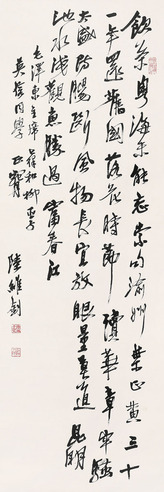 飲茶粵海未能忘索句渝州葉正黃三十
一年還舊國落花時節讀華章牢騷
太盛防腸斷風物長宜放眼量莫道昆明
池水淺觀魚勝過富春江
毛澤東主席七律和柳亞子
同學
陸維釗